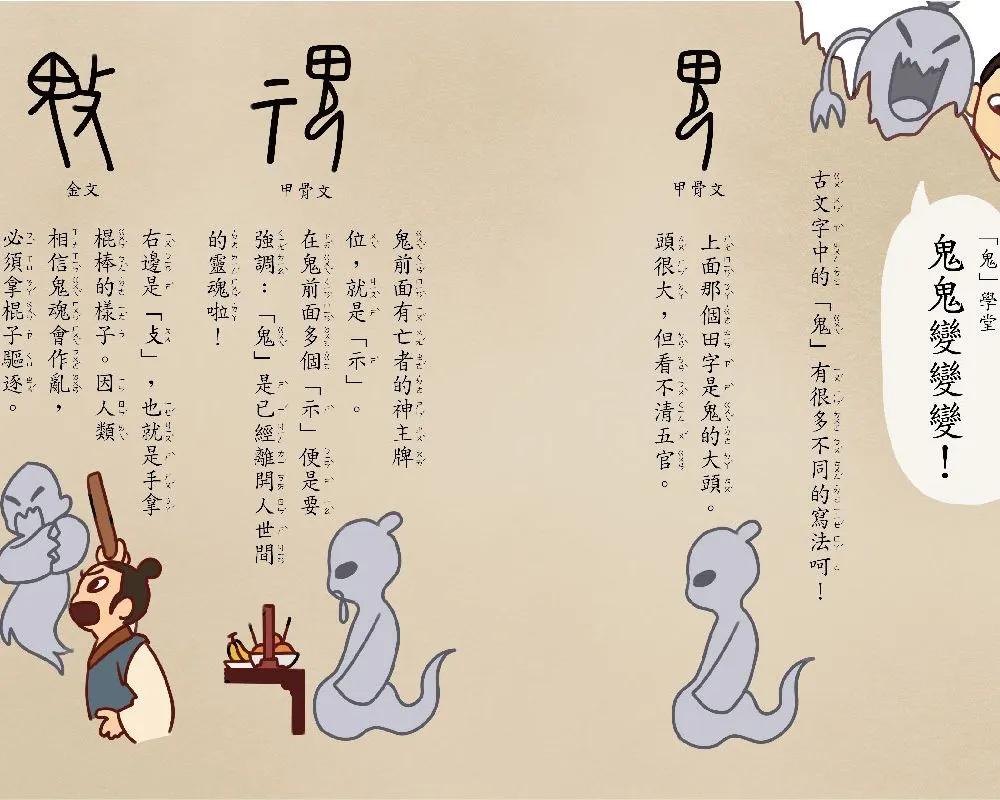 「鬼」學堂
鬼鬼變變變！
古文字中的「鬼」有很多不同的寫法呵！
甲骨文
上面那個田字是鬼的大頭。
頭很大，但看不清五官。
甲骨文
鬼前面有亡者的神主牌
位，就是「示」。
在鬼前面多個「示」便是要
強調：「鬼」是已經離開人世間
的靈魂啦！
金文
右邊是「攴」，也就是手拿
棍棒的樣子。因人類
相信鬼魂會作亂，
必須拿棍子驅逐。